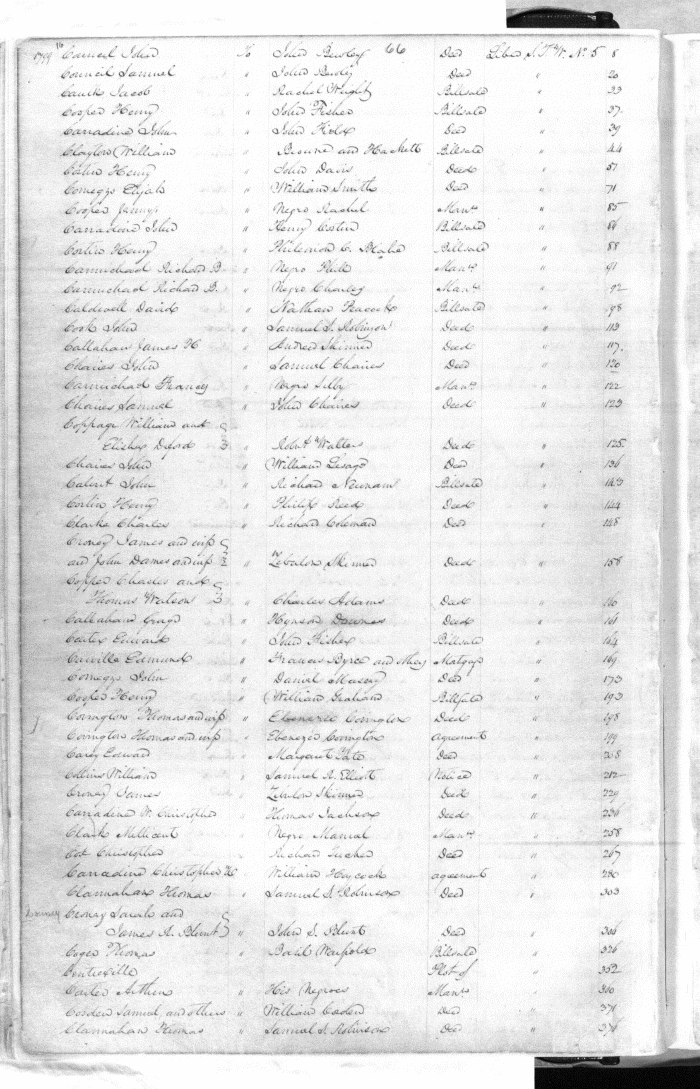 1799 Council John To John Bewley 66 Deed Liber S.T.W. No. 5 8
Council Samuel " John Bewley Deed " 20
Caulk Jacob " Rachel Wright Billsale " 33
Cooper Henry " John Fisher Billsale " 37
Carradine John " John Deed " 39
Clayton William " Browne and Hackett Billsale " 44
Costin Henry " John Davis Deed " 57
Comegys Elijah " William Smith Deed " 71
Cooper " Negro Rachel Man. " 85
Carradine John " Henry Costin Billsale " 86
Costin Henry " Philemon C. Blake Billsale " 88
Carmichael Richard B " Negro Phill Man. " 91
Carmichael Richard B. " Negro Charles Man. " 92
Caldwell David " Nathan Peacock Billsale " 98
Cook John " Samuel S. Robinson Deed " 113
Callahan James H " Andrew Skinner Deed " 117
Chaires John " Samuel Chaires Deed " 120
Carmichael Francis " Negro Silby Man. " 122
Chaires Samuel " John Chaires Deed " 123
Coppage William and
Elisha Deford " Robt. Walters Deed " 125
Chaires John " William Lesage Deed " 136
Calvert John " Richard Newnam Billsale " 143
Costin Henry " Philip Reed Deed " 144
Clarke Charles " Richard Coleman Deed " 148
Croney James and wife
and John Dames and wife " Zebulon Skinner Deed " 158
Copper Charles and
Thomas Watson " Charles Adams Deed " 160
Callahan " Hynson Downes Deed " 161
Carter Edward " John Fisher Billsale " 164
Carville Edmund " Francis Byrce and Mortgage " 169
Comegys John " Daniel Massey Deed " 173
Cooper Henry " William Graham Billsale " 193
Covington Thomas and wife " Ebenezer Covington Deed " 198
Covington Thomas and wife " Ebenezer Covington agreement " 199
Carey Edward " Margaret Tate Deed " 208
Collins William " Samuel A. Elliott Notice " 212
Croney James " Zebulon Skinner Deed " 229
Carradine W. Christopher " Thomas Jackson Deed " 236
Clark Millicent " Negro Manual Man. " 258
Cox Christopher " Richard Deed " 267
Carradine Christopher W " William Haycock agreement " 280
Clannahan Thomas " Samuel S. Robinson Deed " 303
Croney Sarah and
James A. Blunt " John S. Blunt Deed " 306
Coger Thomas " Basil Warfield Billsale " 326
Centreville Plot of " 352
Carter Arthur " His Negroes Man. " 360
Corden Samuel and others " William Corden Deed " 371
Clannahan Thomas " Samuel S. Robinson Deed " 376